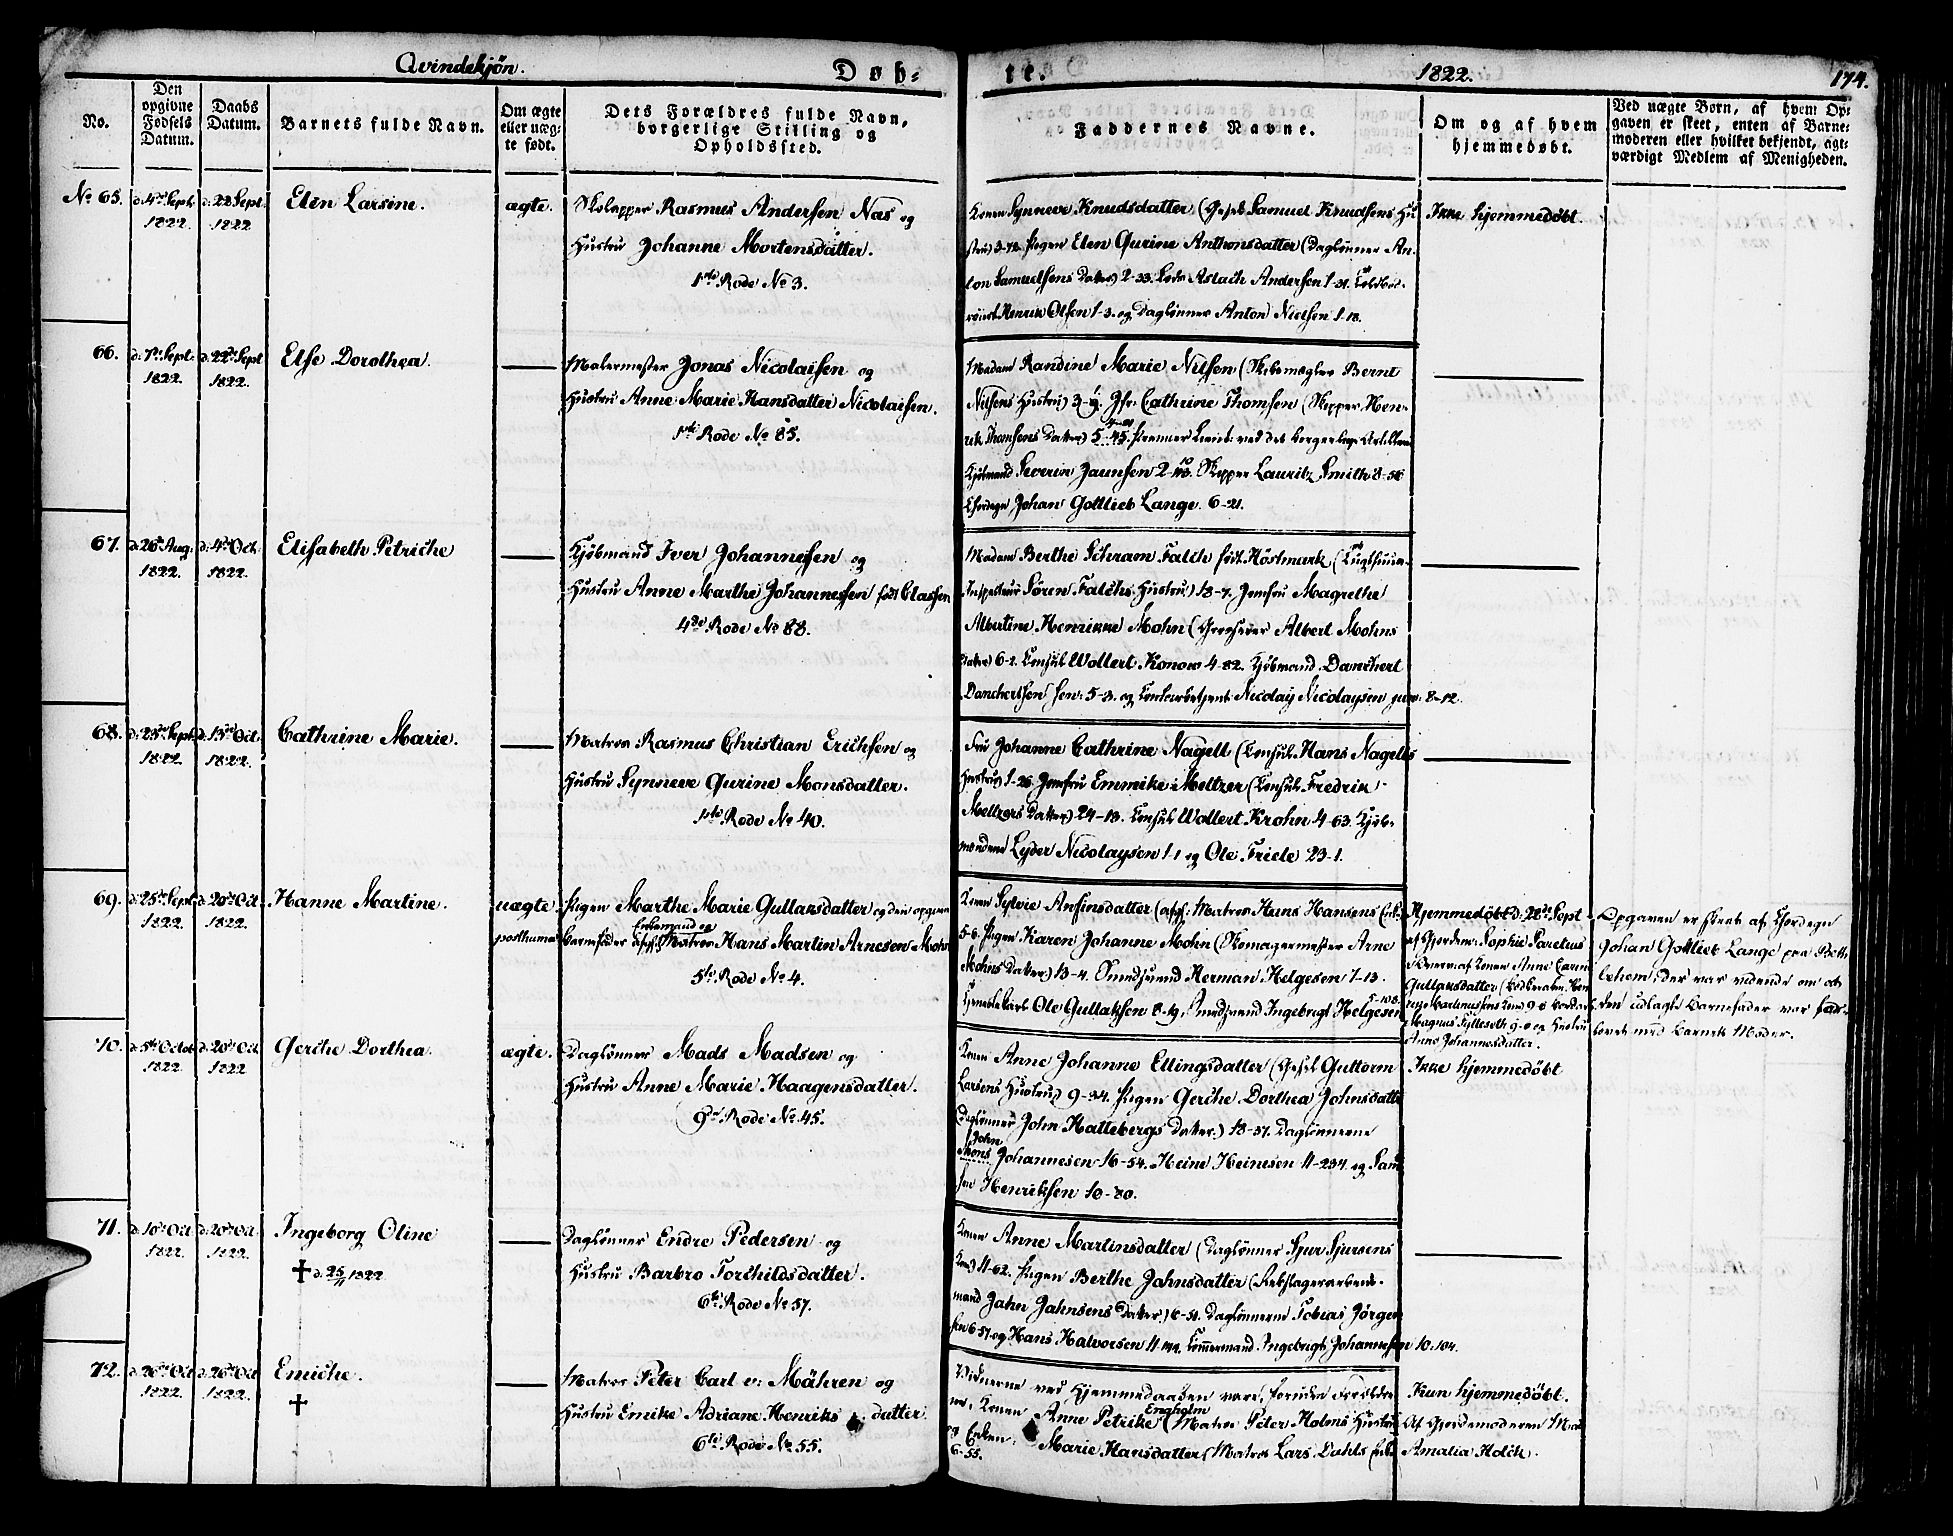 Qvindekjön.
Døb-
te.
1822.
174.
No.
Den opgivne Fødsels Datum.
Daabs Datum.
Barnets fulde Navn.
Om ægte eller uægte født.
Dets Forældres fulde Navn, borgerlige Stilling og Opholdssted.
Faddernes Navne.
Om og af hvem hjemmedøbt.
Ved uægte Børn, af hvem Opgaven er skeet, enten af Barnemoderen eller hvilket bekjendt, agtværdigt Medlem af Menigheden.
No 65.
d. 4de Sept. 1822.
d. 22 Sept. 1822
Elen Larsine.
ægte.
Rasmus Andersen Næs og
Hustru Johanne Mortensdatter.
1ste Rode No 3.
Konen Synneve Knudsdatter (Gesel Samuel Knudsens Hu
stru) 3-72. Pigen Elen Gurine Anthonsdatter (Daglönner An-
ton Samuelsens Datter) 2-33. Aslach Andersen 1-31.
Henrik Olsen 1-3. og Daglønner Anton Nielsen 1-18.
Ikke hjemmedøbt.
66.
d. 7de Sept. 1822.
d. 22de Sept 1822.
Else Dorothea.
Malermester Jonas Nicolaisen og
Hustru Anne Marie Hansdatter Nicolaisen.
1ste Rode No 85.
Madam Randine Marie Nilsen (Skibsmægler Bernt
Nilsens Hustru) Jfr. Cathrine Thomsen (Skipper Hen-
rik Thomsens Datter)
Kjöbmand Severin Jaunsen Skipper Lauritz Smith 8-56
Johan Gottlieb Lange. 6-21.
67.
d. 26 Aug. 1822.
d. 4de Oct. 1822.
Elisabeth Petriche
Kjöbmand Iver Johannessen og
Hustru Anne Marthe Johannessen født Clausen
4de Rode No 88.
Madam Berthe Schram Falch født Höstmark
Inspecteur Sören Falchs Hustru) 18-7. Jomfru Magrethe
Albertine Henrikke Mohn (Grosserer Albert Mohns
Datter) 6-2. Konsul Wollert Konow 4-82. Kjöbmand Danchert
Danchertsen sen: 5-3. og Nicolay Nicolaysen jun: 8-12.
68.
d. 23de Sept. 1822.
d. 13de Oct. 1822.
Cathrine Marie.
Matros Rasmus Christian Erichsen og
Hustru Synneve Gurine Monsdatter.
1ste Rode No 40.
Fru Johanne Cathrine Nagell (Konsul Hans Nagells
Hustru) 1-26. Jomfru Emmike Meltzer (Konsul Fredrik
Meltzers Datter) 24-13. Konsul Wollert Krohn 4-63. Kjöb-
mændene Lyder Nicolaysen 1-1 og Ole Friele 23-1.
69.
d. 25de Sept 1822.
d. 20de Oct. 1822.
Hanne Martine.
uægte.
posthuma
Pigen Marthe Marie Gullaksdatter og den opgivne
Enkemand og
Barnefader afgl. Matros Hans Martin Arnesen Mohn
5te Rode No 4.
Konen Sylvie Ansinsdatter (afgl. Matros Hans Hansens Enke)
5-6. Pigen Karen Johanne Mohn (Skomagermester Arne
Mohns Datter) 13-4. Smedsvend Herman Helgesen 1-13.
Ole Gullaksen 8-19, Smedsvend Ingebrigt Helgesen 5-108.
Hjemmedøbt d. 28de Sept.
af Gjordem: Sophie Paretius
af Konen Anne Carine
Gullaksdatter
Magnus Sylleseth 9-8 og Hustru
Anne Johannesdatter.
Opgaven er skeet af Chordegn
Johan Gottlieb Lange
behem, der var vidende om at
den udlagte Barnefader var
lovet med Barnets Moder.
70.
d. 5te Octob 1822.
d. 20de Oct. 1822
Gerche Dorthea.
ægte.
Daglønner Mads Madsen og
Hustru Anne Marie Haagensdatter.
9de Rode No 45.
Konen Anne Johanne Ellingsdatter (Gesel Guttorm
Larsens Hustru) 9-34. Pigen Gerche Dorthea Johnsdatter
(Daglønner John Hattebergs Datter.) 18-57. Daglønnerne
John
Mons Johannesen 16-54. Heine Heinesen 11-234. og Sam-
sen Henriksen 10-80.
Ikke hjemmedøbt
71.
d. 10de Oct. 1822.
d. 20de Oct. 1822.
Ingeborg Oline
✝ d. 25/11 1822.
Daglønner Endre Pedersen og
Hustru Barbro Torchildsdatter.
6te Rode No 57.
Konen Anne Martinsdatter (Daglønner Sjur Sjursens
Kone) 11-62. Pigen Berthe Jahnsdatter (Rebslagerarbeids-
mand Jahn Jahnsens Datter.) 6-51. Daglønnerne Tobias Jörgen
sen 6-57. og Hans Halvorsen 11-144. Tømmermand Ingebrigt Johannesen 10-104.
72.
d. 26de Oct 1822.
d. 26de Oct 1822.
Emiche.
✝
Matros Peter Carl v: Mähren og
Hustru Emike Adriane Henriksdatter.
6te Rode No 55.
Vidnerne ved Hjemmedaaben vare, foruden Forældre
ne, Konen Anne Petrike Engholm (Matros Peter Holms Hustru
og Enken Marie Hansdatter (Matros Lars Dahls Enke
6-55.
Kun hjemmedøbt.
Af Gjordemoderen Mad
Amalia Holch.